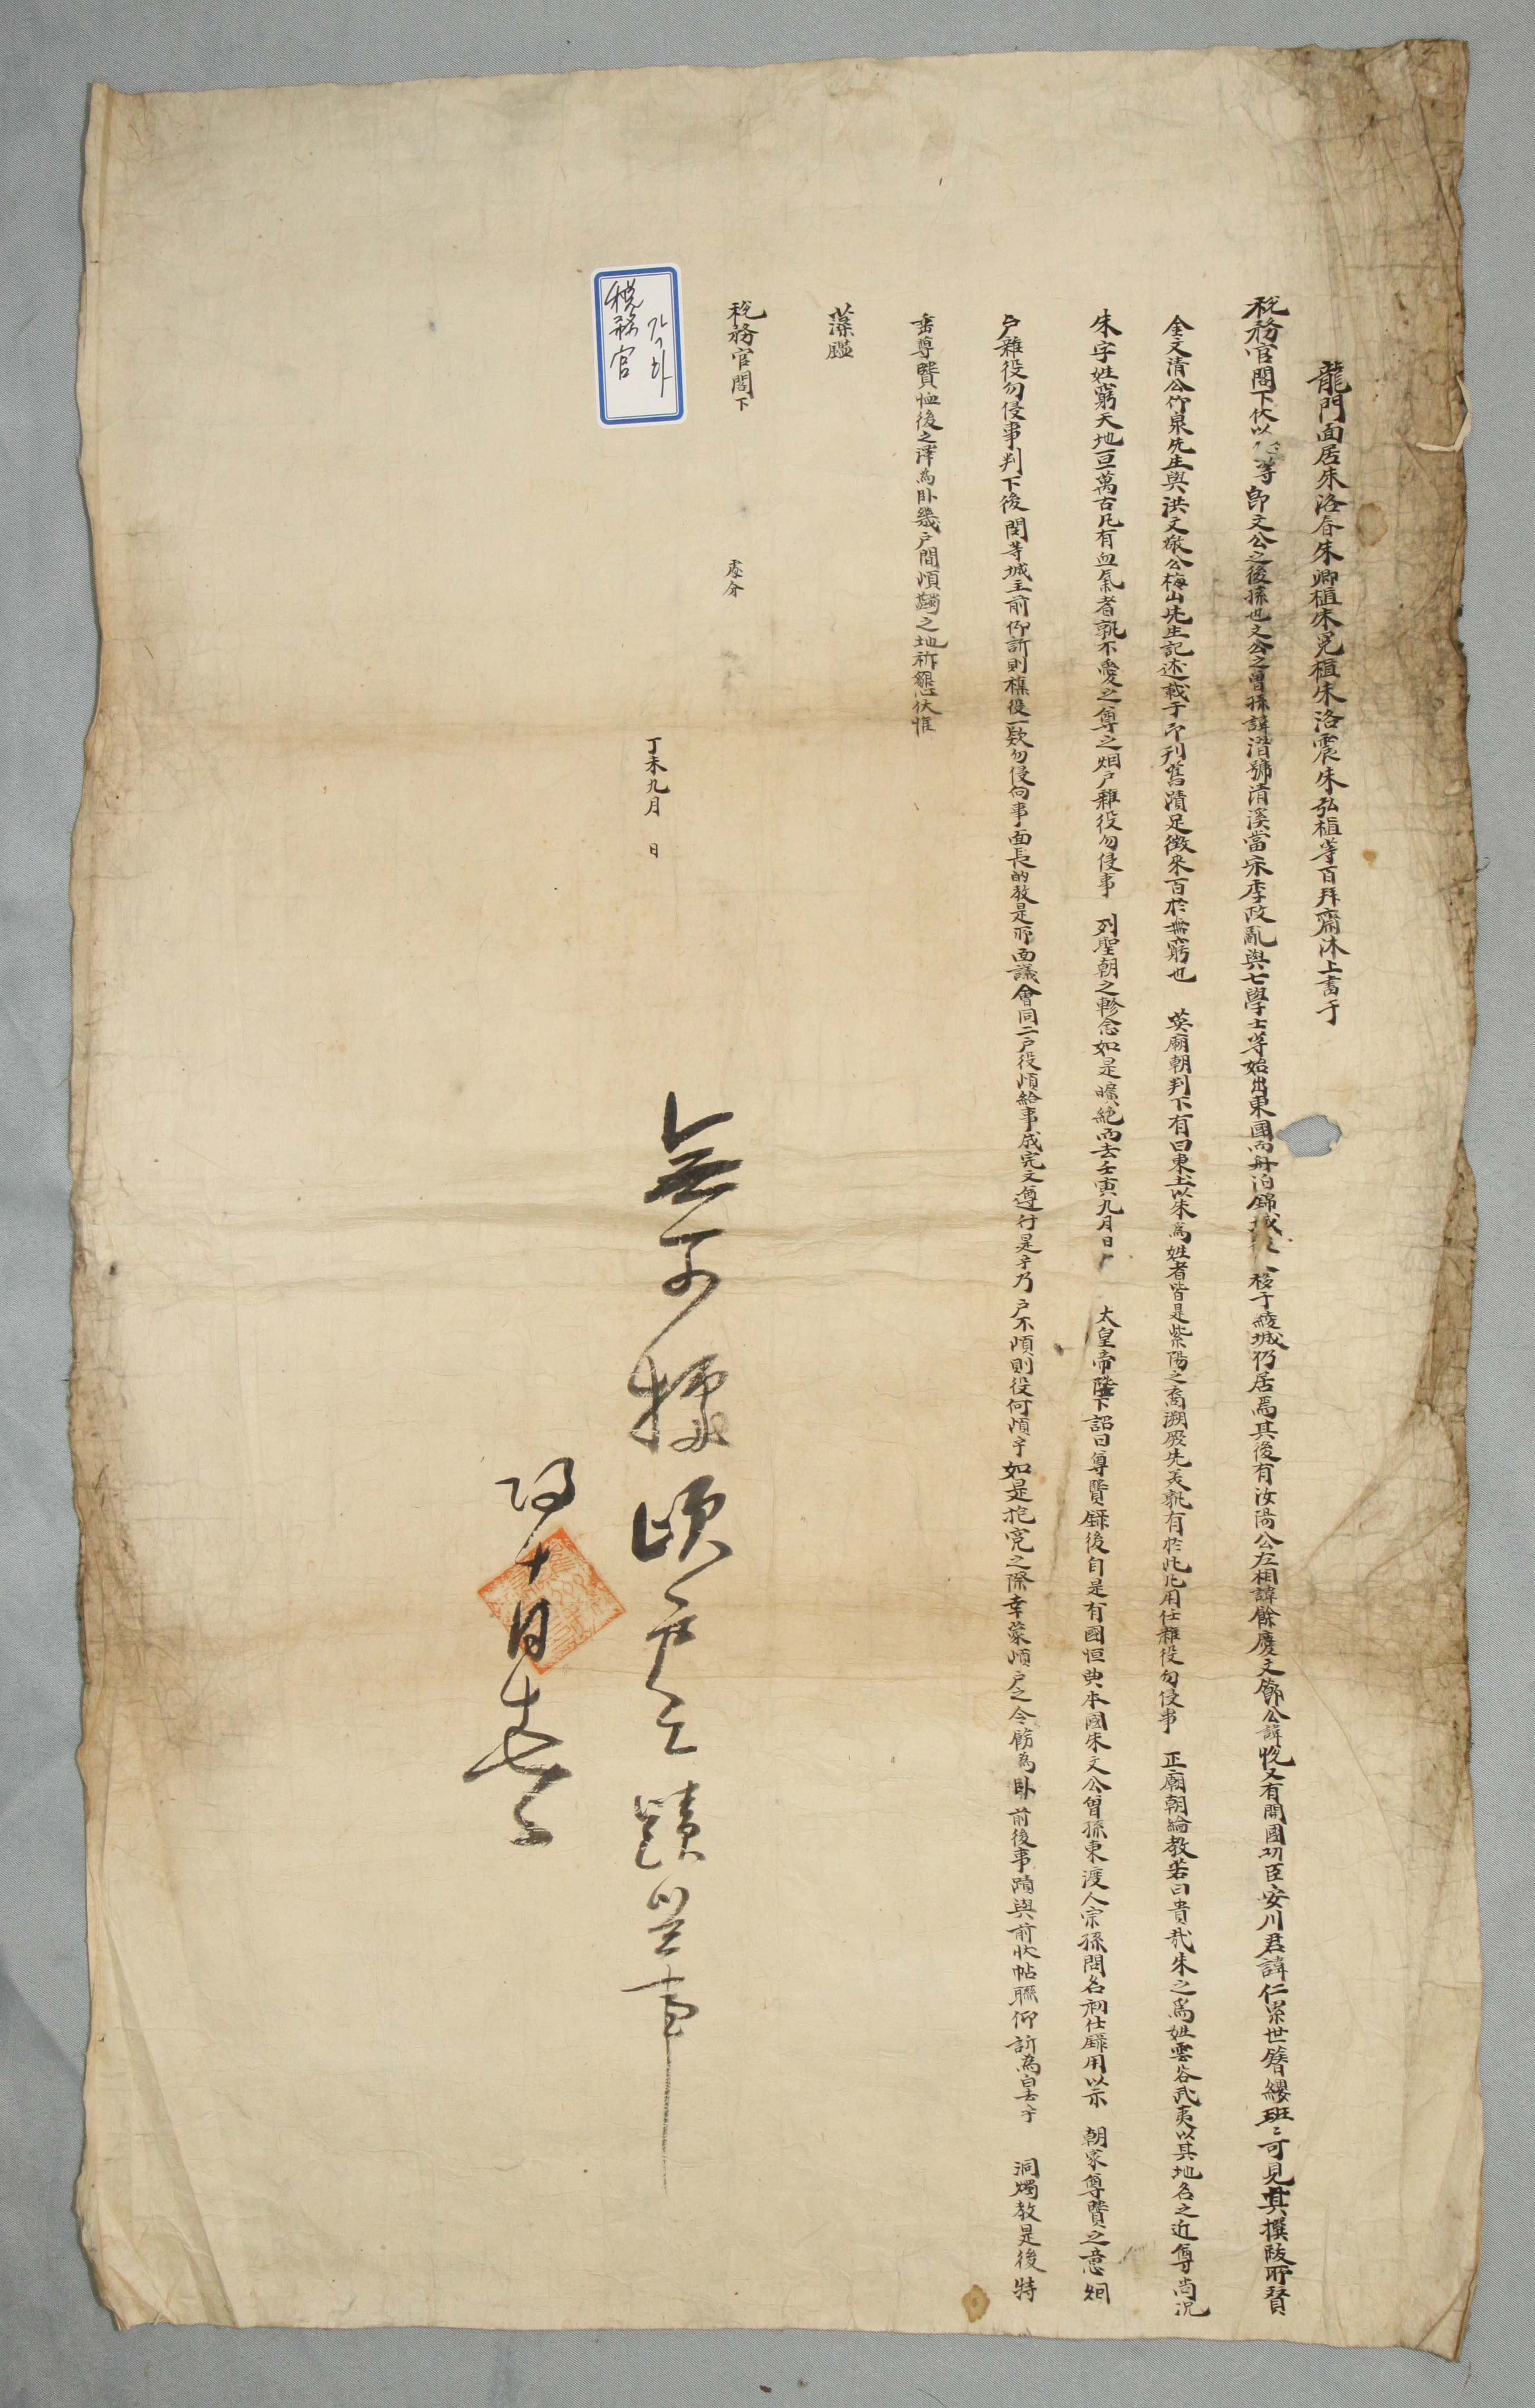 龍門面居朱洛春朱卿植朱冕植朱洛震朱弘植等百拜齋沐上書于
稅務官閣下伏以 等 卽文公之後孫也文公之曾孫諱潛號淸溪當宋季政亂與七學士等始出東國而舟泊錦城 移于綾城仍居焉其後有汝陽公左相諱餘慶文節公諱悅又有開國功臣安川君諱仁累世簪纓班〻可見其撰跋所贊
金文淸公竹泉先生與洪文敬公梅山先生記述載于印刊舊蹟足徵來百於無窮也 英廟朝判下有曰東土以朱爲姓者皆是紫陽之裔溯厥先美孰有於此比用仕雜役勿侵事 正廟朝綸敎若曰貴哉朱之爲姓雲谷武夷以其地名之近尊尙況
朱字姓窮天地亘萬古凡有血氣者孰不愛之尊之烟戶雜役勿侵事 列聖朝之軫念如是曠絶而去壬寅九月日 太皇帝陛下詔曰尊賢錄後自是有國恒典本國朱文公曾孫東渡人宗孫問名初仕錄用以示 朝家尊賢之意 烟
戶雜役勿侵事判下後 閏等城主前仰訴則橫役一款勿侵向事面長的敎是所面議會同二戶役頉給事成完文遵行是乎乃 戶不頉則役何頉乎如是抱寃之際幸蒙頉戶之令飭爲卧 前後事蹟與前狀帖聯仰訴爲白去乎 洞燭敎是後 特
垂尊賢恤後之澤爲卧幾戶間頉蠲之地祈懇伏惟
藻鑑
稅務官閣下 處分
丁未九月 日
無可據頉戶之蹟 事
十月
稅務官
각하